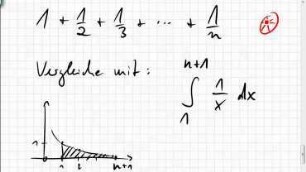 1 + 1/2 + 1/3 + ... + 1/n (*)
Vergleiche mit: ∫₁ⁿ⁺¹ 1/x dx
1
1 2 n+1